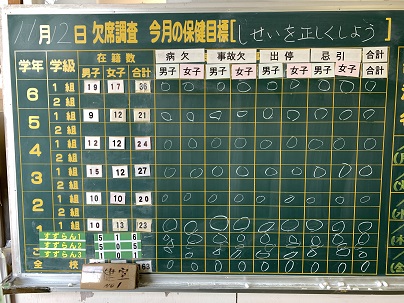 11月12日 欠席調査 今月の保健目標[しせいを正しくしよう]
学年 学級 在籍数 病欠 事故欠 出停 忌引 合計
男子 女子 合計 男子 女子 男子 女子 男子 女子 男子 女子 合計
6 1組 19 17 36 〇 〇 〇 〇 〇 〇 〇 〇 〇
2組
5 1組 9 12 21 〇 〇 〇 〇 〇 〇 〇 〇 〇
2組
4 1組 12 12 24 〇 〇 〇 〇 〇 〇 〇 〇 〇
2組
3 1組 15 12 27 〇 〇 〇 〇 〇 〇 〇 〇 〇
2組
2 1組 10 10 20 〇 〇 〇 〇 〇 〇 〇 〇 〇
2組
1組 10 13 23 〇 〇 〇 〇 〇 〇 〇 〇 〇
すずらん1 5 1 6
すずらん2 5 0 5
すずらん3 5 1
全校